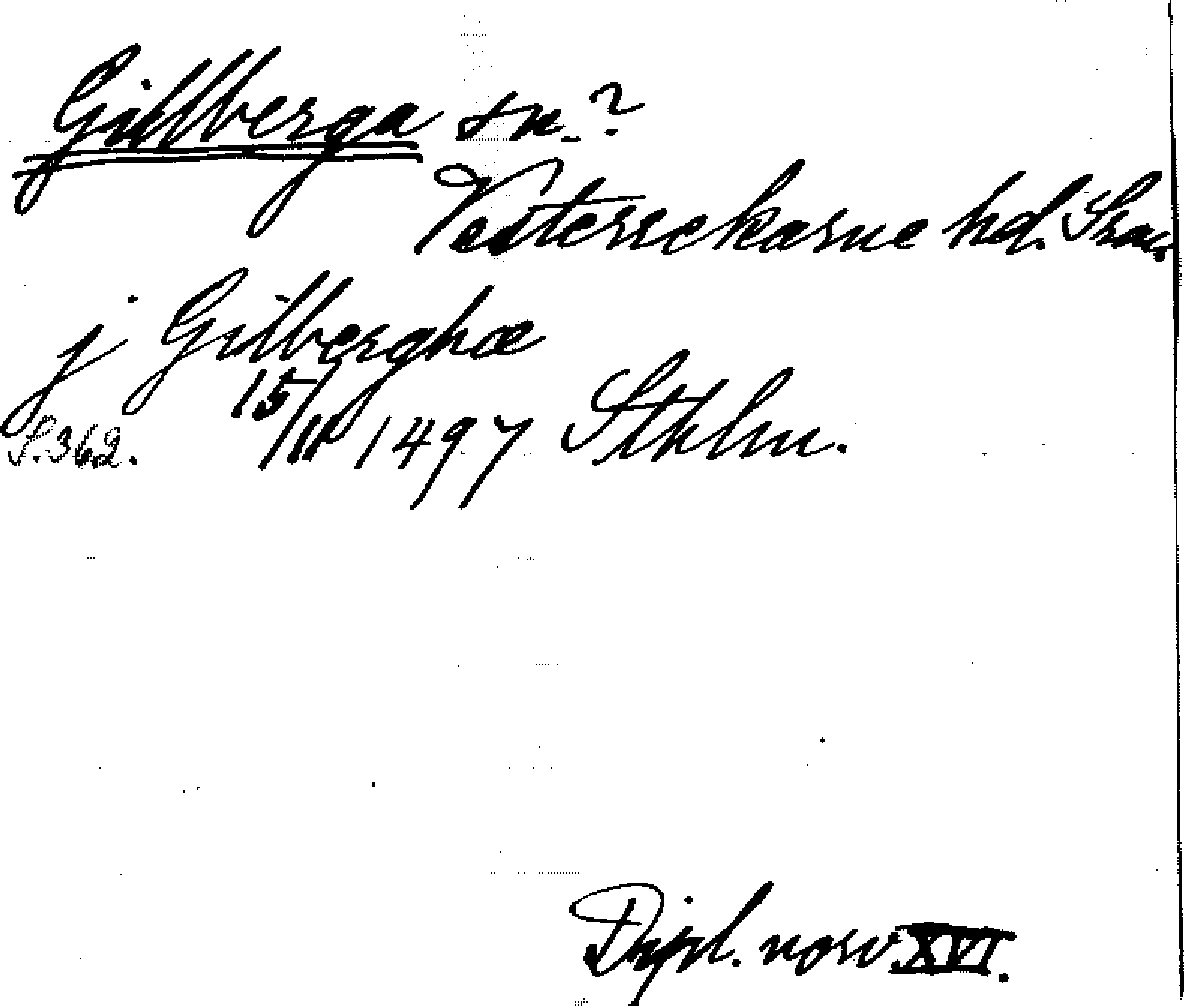 Gillberga sn.?
Vesterrekarne hd. Srm.
j Gilberghæ
S. 362. 15/11 1497 Sthlm.
Dipl. norv. XVI.